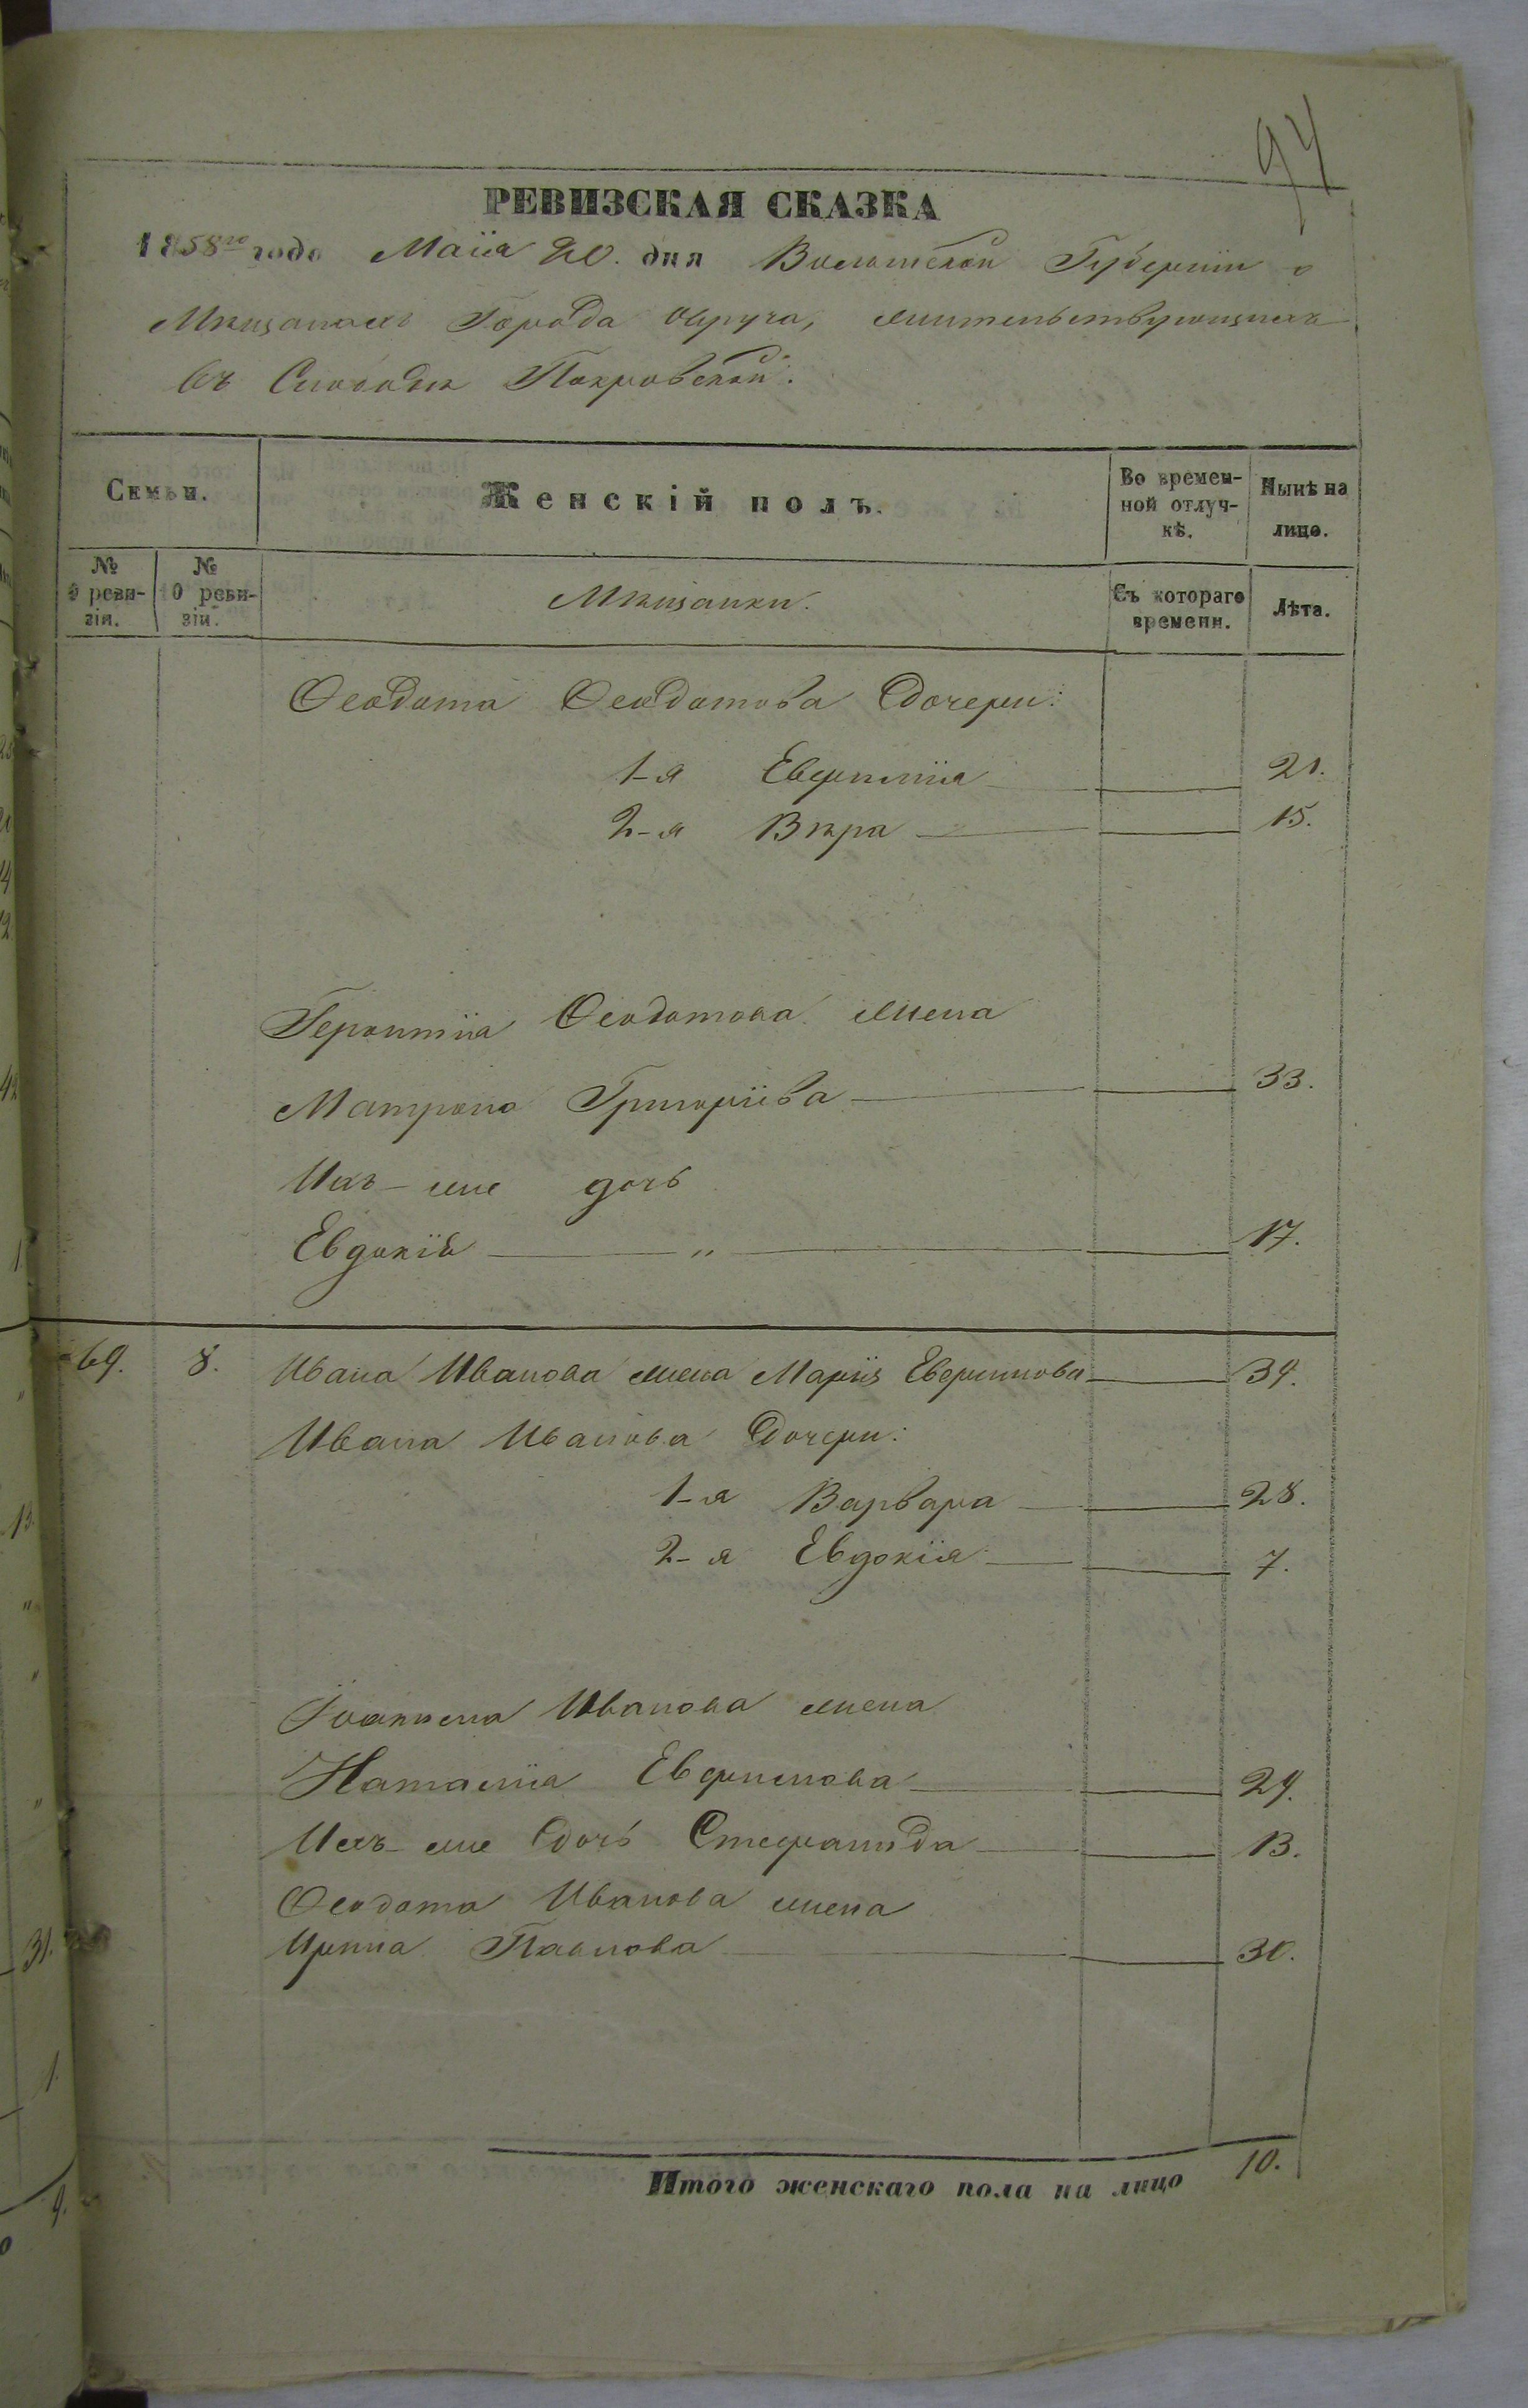 94
РЕВИЗСКАЯ СКАЗКА
1858го года Маiя 20. дня Волынской Губернiи о
Мѣщанахъ Города Овруча, жительствующихъ
въ Слободѣ Покровской.
Семьи.
Женскій полъ.
Во времен-
ной отлуч-
кѣ.
Нынѣ на
лицо.
№
9 реви-
зіи.
№
10 реви-
зіи.
Мѣщанки.
Съ котораго
времени.
Лѣта.
Феодота Феодотова дочери:
1-я Евфимiя 21.
2-я Вѣра 15.
Геронтiя Феодотова жена
Матрона Григорiева 33.
Ихъ-же дочь
Евдокiя " 17.
69. 8. Ивана Иванова жена Марiя Евфимова 39.
Ивана Иванова дочери:
1-я Варвара 28.
2-я Евдокiя 7.
Іоакима Иванова жена
Наталiя Евфимова 29.
Ихъ-же дочь Стефанида 13.
Феодота Иванова жена
Ирина Павлова 30.
Итого женскаго пола на лицо 10.